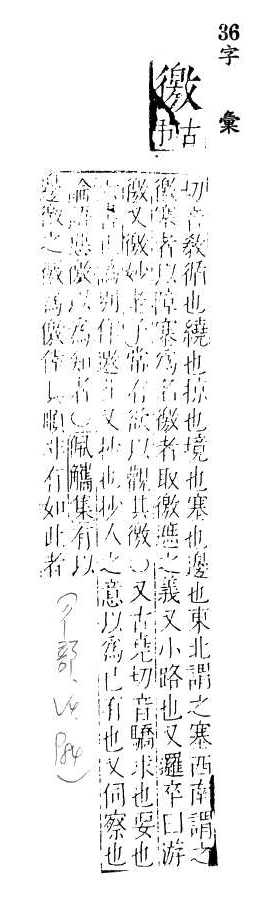 36字 彙
徼
古弔
切音敎循也繞也掠也境也塞也邊也東北謂之塞西南謂之
徼塞者以障塞爲名徼者取徼遮之義又小路也又邏卒曰游
徼又徼妙老子常有欲以觀其徼〇又古堯切音驍求也要也
又抄也抄人之意以爲己有也又伺察也
論語惡徼以爲知者〇佩觿集有以
邊徼之徼爲徼倖 有如此者
(彳部、